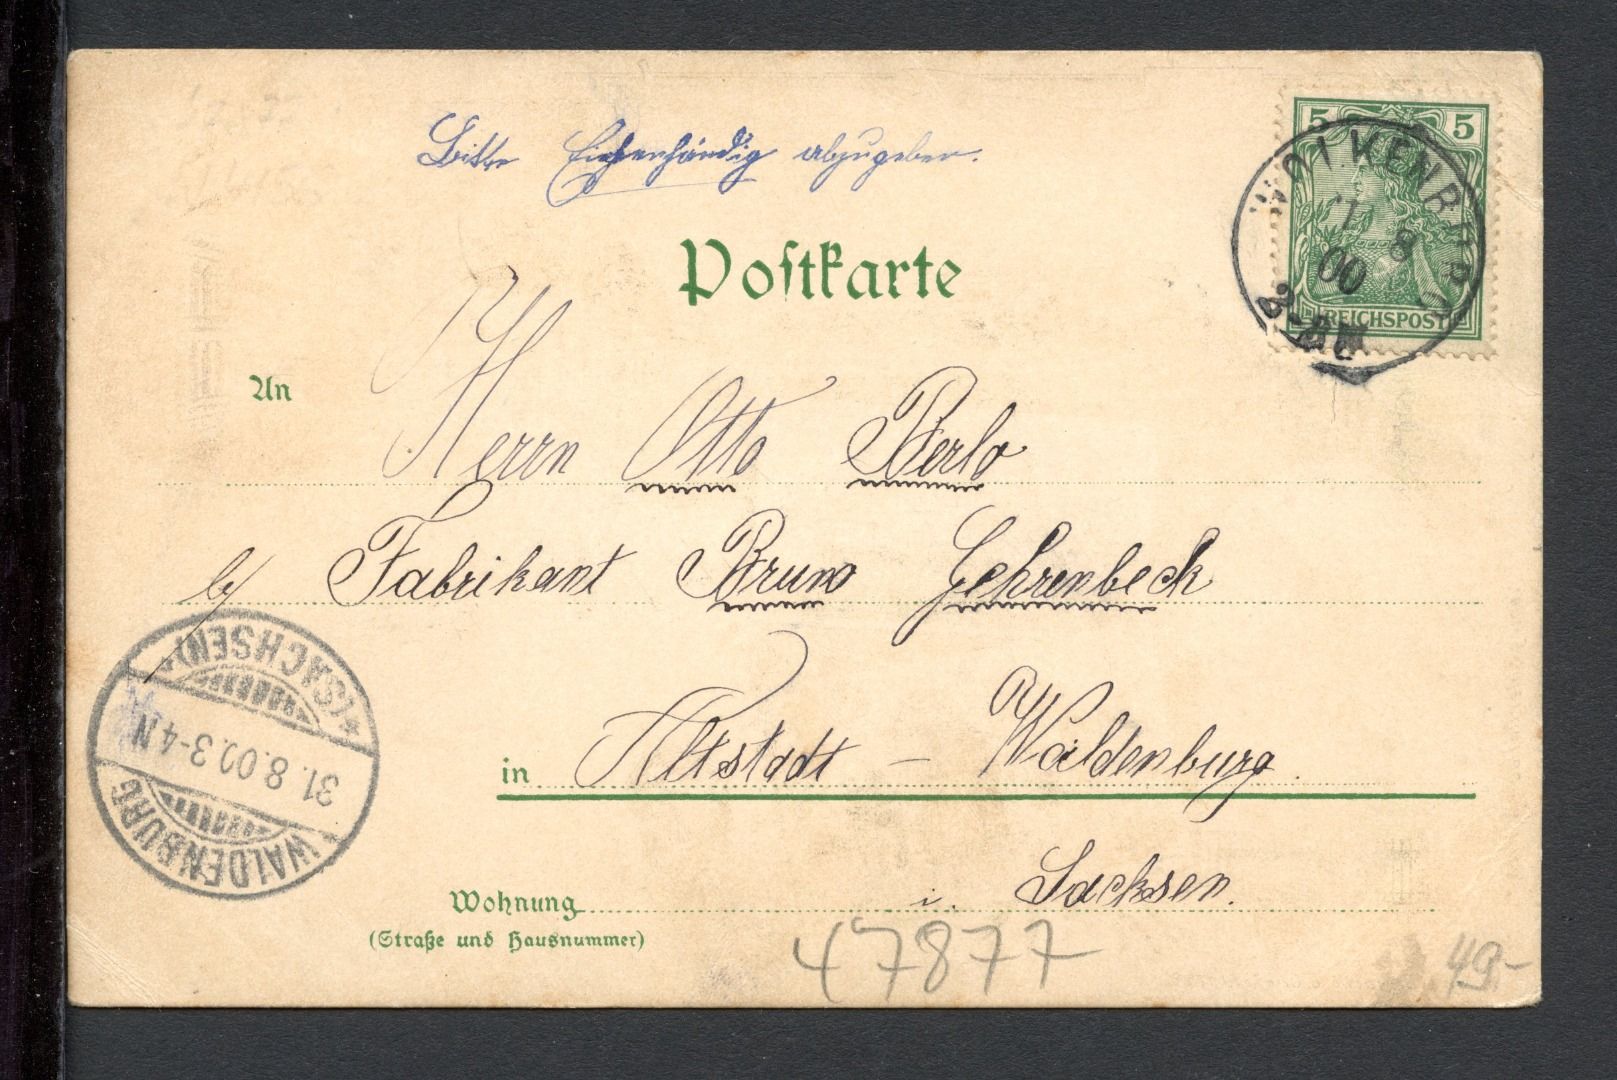 Bitte Eigenhändig abzugeben.
5 5
WOLKENBURG
8
00
REICHSPOST
Postkarte
An
Herrn Otto Berlo
b/ Fabrikant Bruno Gehrenbeck
in Altstadt - Waldenburg
i. Sachsen.
Wohnung
(Straße und Hausnummer)
WALDENBURG
31.8.00.3-4N
*(SACHSEN)*
47877
49.-